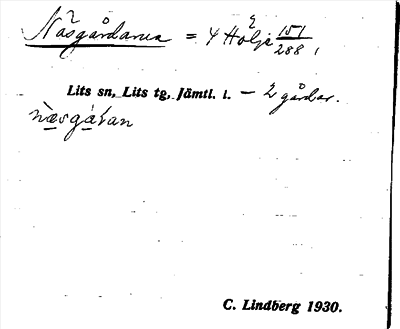 Näsgårdarna = 4 Hölje 151/288,
Lits sn, Lits tg, Jämtl. l. – 2 gårdar.
næsgáɽan
C. Lindberg 1930.